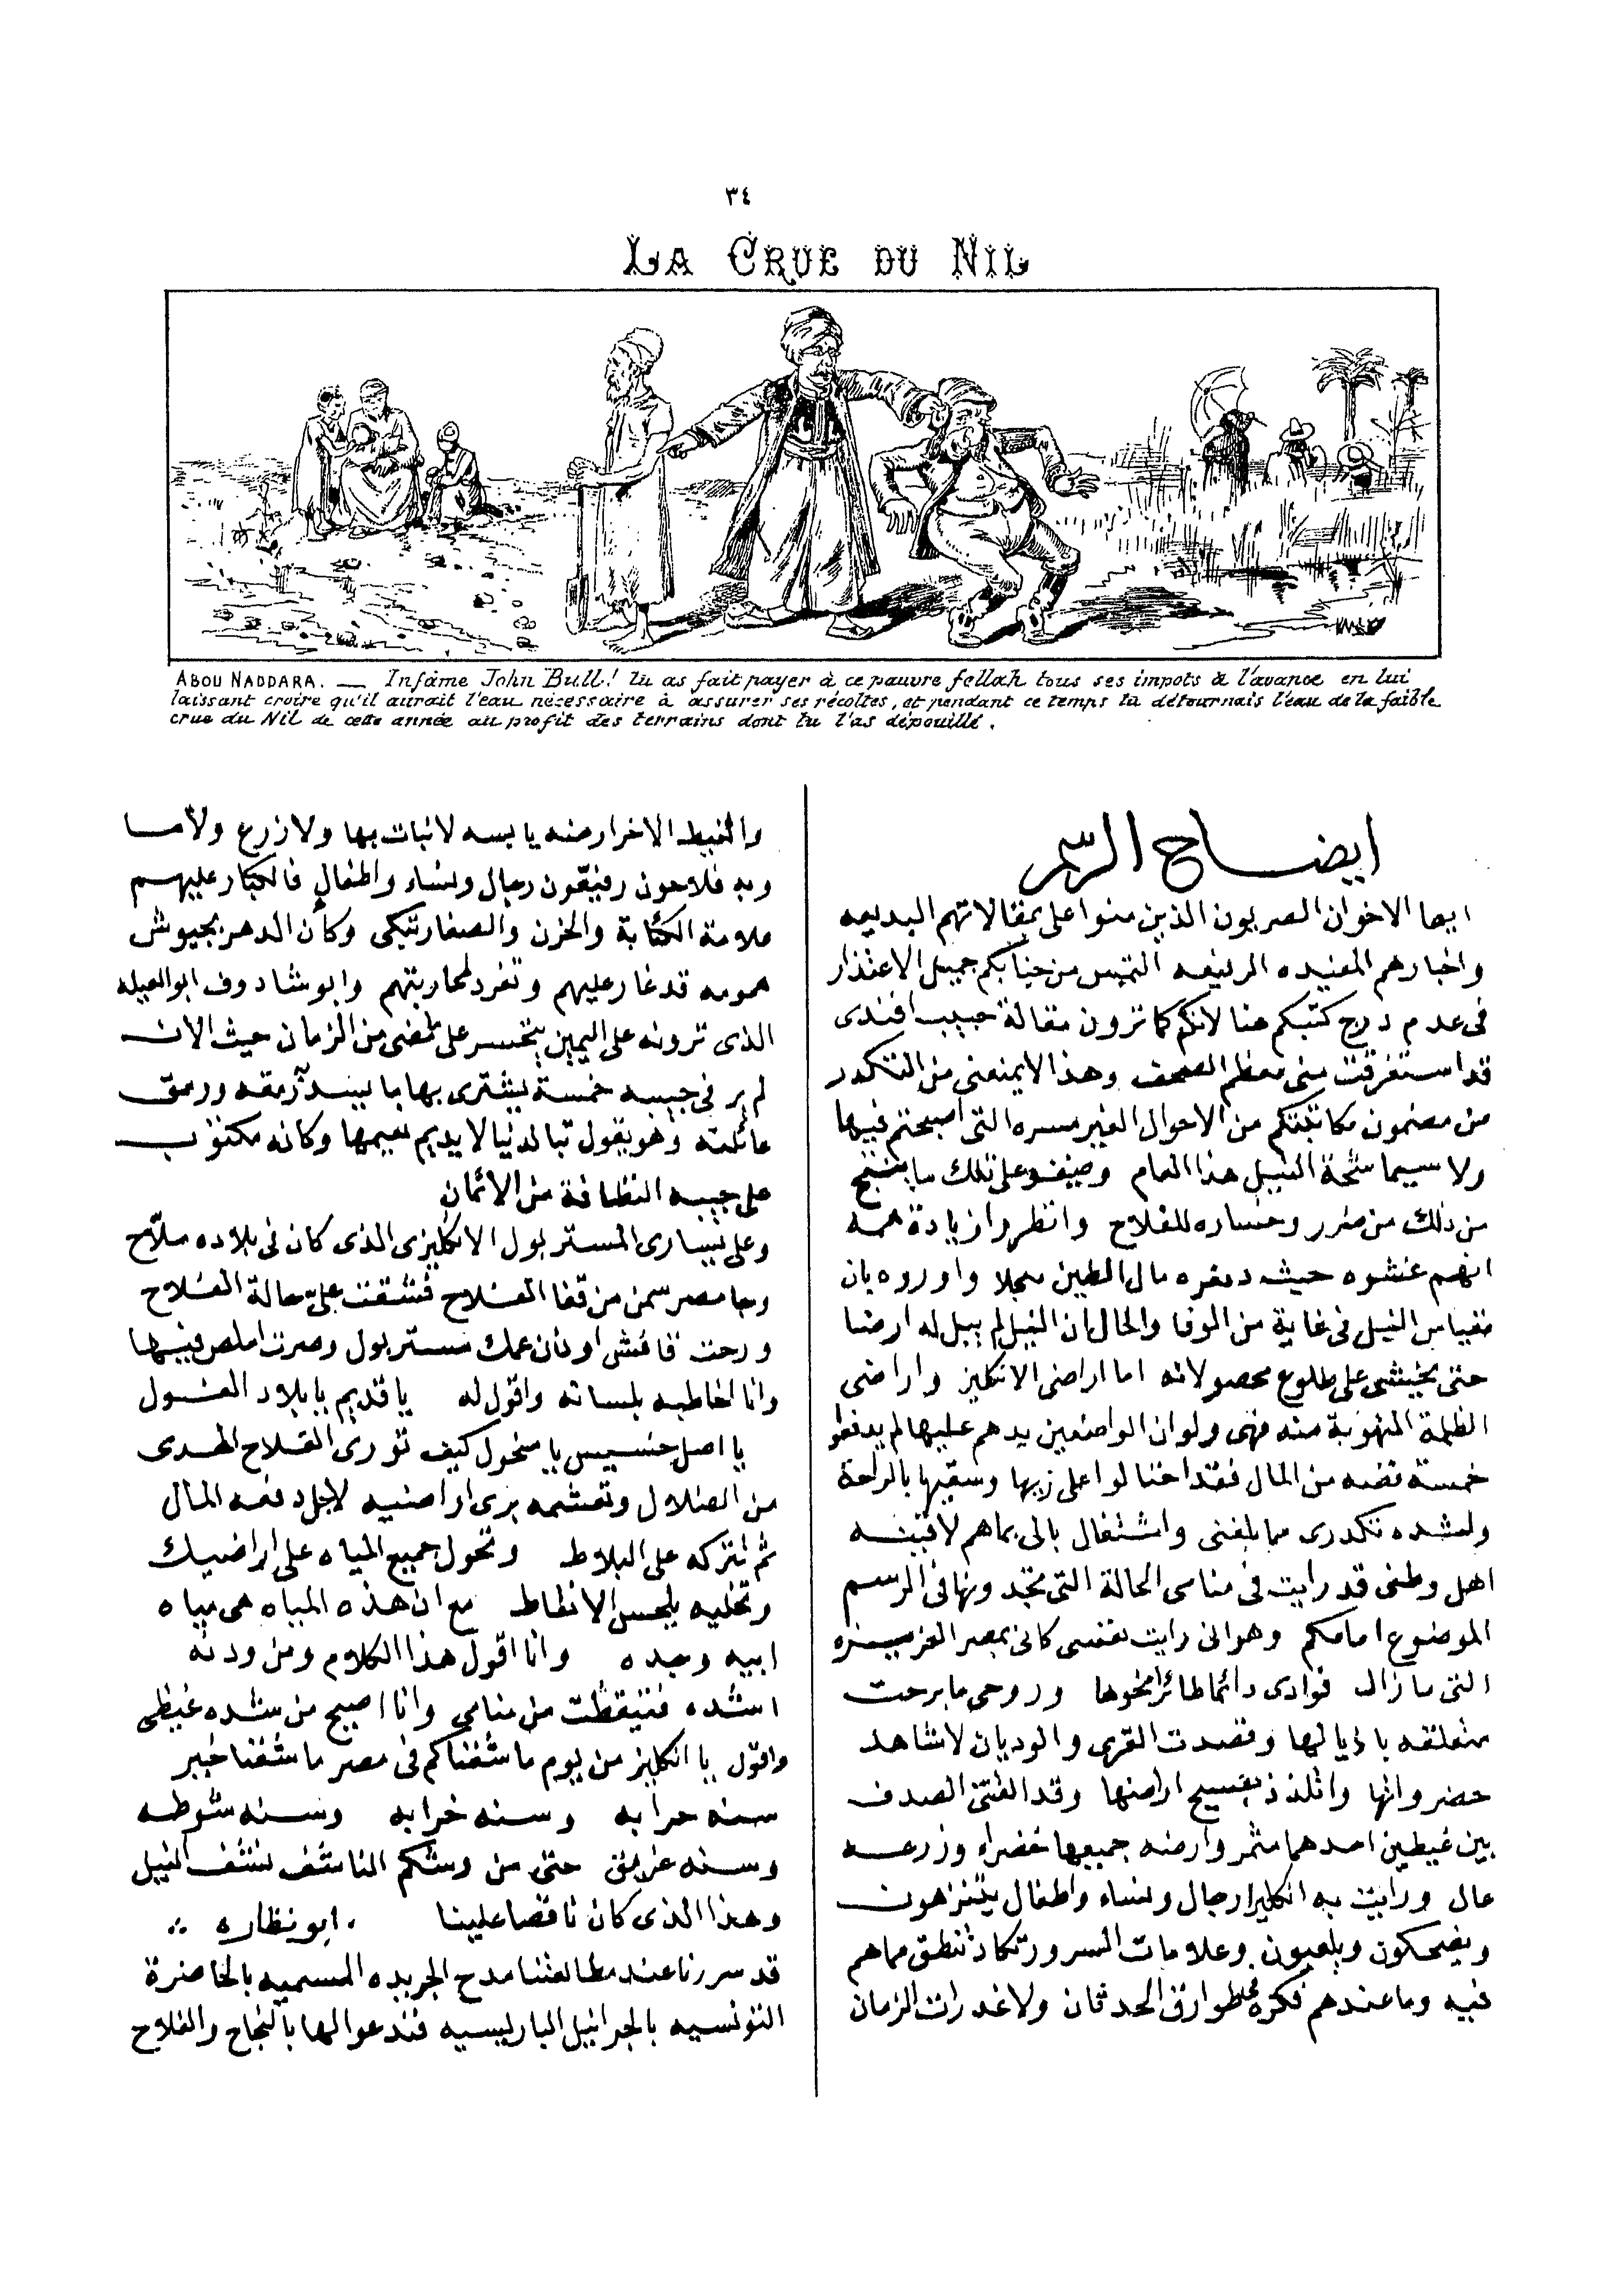 ٣٤
LA CRUE DU NIL
ABOU NADDARA. — Infâme John Bull! tu as fait payer à ce pauvre fellah tous ses impots à l'avance en lui
laissant croire qu'il aurait l'eau nécessaire à assurer ses récoltes, et pendant ce temps tu détournais l'eau de la faible
crue du Nil de cette année au profit des terrains dont tu l'as dépouillé.
ايضاح الرسم
ايها الاخوان المصريون الذين منوا على بمقالاتهم البديعه
واخبارهم المفيده الرفيعه التمس من جنابكم جميل الاعتذار
فى عدم درج كتبكم هنا لانكم كما ترون مقالة حبيب افندى
قد استغرقت منى معظم الصحف وهذا لا يمنعنى من التكدر
من مضمون مكاتبتكم من الاحوال الغير مسره التى اصبحتم فيها
ولا سيما شحة النيل هذا العام وضيفو على ذلك ما ينتج
من ذلك من ضرر وخساره للفلاح وانظروا زيادة همه
انهم غشوه حيث دفعوه مال الطين معجلا واوروه بان
مقياس النيل فى غاية من الوفا والحال ان النيل لم يبل له ارضا
حتى يخشى على طلوع محصولاته اما اراضى الانكليز واراضى
الظلمة المنهوبة منه فهى ولو ان الواضعين يدهم عليها لم يدفعوا
خمسة فضه من المال فقد احتالوا على زيها وسقيها بالراحة
ولشده تكدرى مما بلغنى واشتغال بالى بما هم لاقينه
اهل وطنى قد رايت فى منامى الحالة التى تجدونها فى الرسم
الموضوع امامكم وهو انى رايت نفسى كانى بمصر العزيزه
التى ما زال فوادى دائما طائرا نحوها وروحى ما برحت
متعلقه باذيالها وقصدت القرى والوديان لاشاهد
حضرواتها واتلذذ بفسيح اراضها وقد الفتنى الصدف
بين غيطين احدهما مثمر وارضه جميعها خضراء وزرعه
عال ورايت به انكليزا رجال ونساء واطفال يتنزهون
ويضحكون ويلعبون وعلامات السرور تكاد تنطق مما هم
فيه وما عندهم فكره بطوارق الحدثان ولا غدرات الزمان
والغيط الاخر ارضه يابسه لا نبات بها ولا زرع ولا ما
وبه فلاحون رفيعون رجال ونساء واطفال فالكبار عليهم
علامة الكئابة والحزن والصغار تبكى وكأن الدهر بجيوش
همومه قد غار عليهم وتفرد لمحاربتهم وابو شادوف ابو العيله
الذى ترونه على اليمين يتحسر على ما مضى من الزمان حيث الان
لم ير فى جيبه خمسة يشترى بها ما يسد رمقه ورمق
عائلته وهو يقول تبا لدنيا لا يديم نعيمها وكانه مكتوب
على جيبه النظافة من الائمان
وعلى يسارى المستر بول الانكليزى الذى كان فى بلاده ملاح
وجا مصر سمن من قفا الفلاح فشقت على حالة الفلاح
ورحت قافش اودان عمك مستر بول وصرت املص فيها
وانا اخاطبه بلسانه واقول له يا قديم يا بلاد الغول
يا اصل خسيس يا سخول كيف تورى الفلاح الهدى
من الضلال وتعشمه برى اراضيه لاجل دفعه المال
ثم تتركه على البلاط وتحول جميع المياه على اراضيك
وتخليه يلحس الانطاط مع ان هذه المياه هى مياه
ابيه وجده وانا اقول هذا الكلام ومن ودنه
اشده فتيقظت من منامى وانا اصيح من شده غيظى
واقول يا انكليز من يوم ما شفناكم فى مصر ما شفنا خير
سنه حرابه وسنه خرابه وسنه شوطه
وسنه غريق حتى من وشكم الناشف نشف النيل
وهذا الذى كان ناقصا علينا . ابو نظاره
قد سررنا عند مطالعتنا مدح الجريده المسميه بالحاضرة
التونسيه بالجرانيل الباريسيه فندعوا لها بالنجاح والفلاح